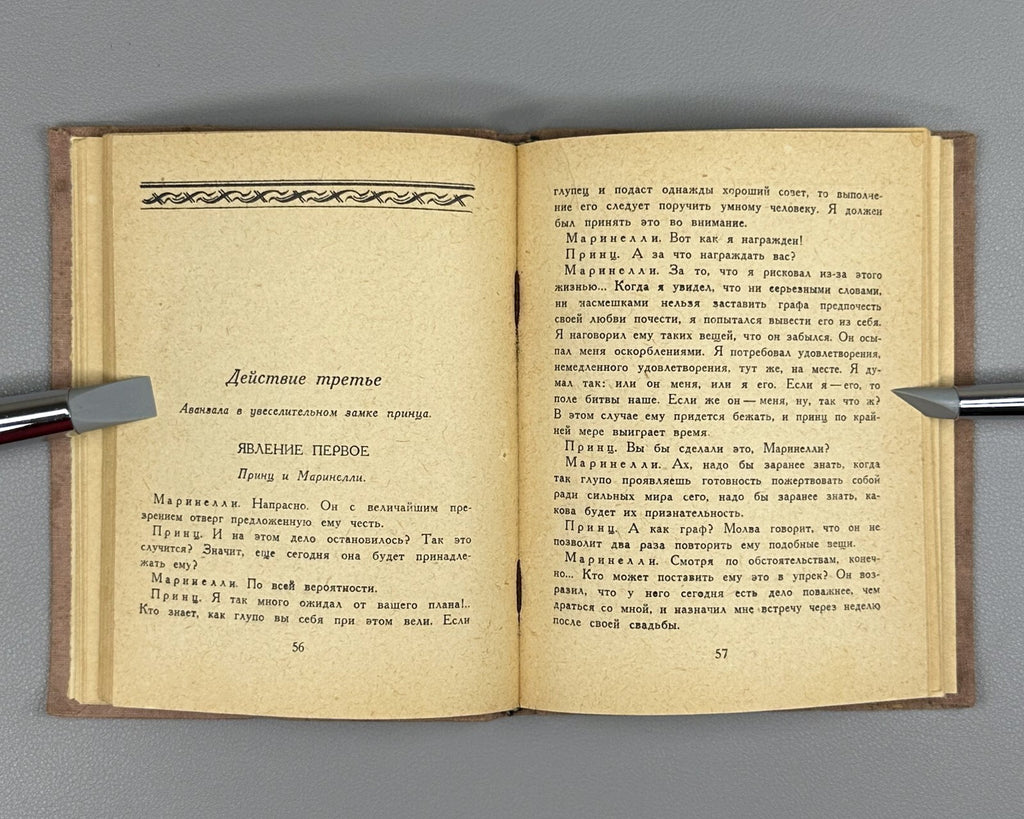 Действие третье
Аванзала в увеселительном замке принца.
ЯВЛЕНИЕ ПЕРВОЕ
Принц и Маринелли.
Маринелли. Напрасно. Он с величайшим пре-
зрением отверг предложенную ему честь.
Принц. И на этом дело остановилось? Так это
случится? Значит, еще сегодня она будет принадле-
жать ему?
Маринелли. По всей вероятности.
Принц. Я так много ожидал от вашего плана!..
Кто знает, как глупо вы себя при этом вели. Если
56
глупец и подаст однажды хороший совет, то выполне-
ние его следует поручить умному человеку. Я должен
был принять это во внимание.
Маринелли. Вот как я награжден!
Принц. А за что награждать вас?
Маринелли. За то, что я рисковал из-за этого
жизнью... Когда я увидел, что ни серьезными словами,
ни насмешками нельзя заставить графа предпочесть
своей любви почести, я попытался вывести его из себя.
Я наговорил ему таких вещей, что он забылся. Он осы-
пал меня оскорблениями. Я потребовал удовлетворения,
немедленного удовлетворения, тут же, на месте. Я ду-
мал так: или он меня, или я его. Если я — его, то
поле битвы наше. Если же он — меня, ну, так что ж?
В этом случае ему придется бежать, и принц по край-
ней мере выиграет время.
Принц. Вы бы сделали это, Маринелли?
Маринелли. Ах, надо бы заранее знать, когда
так глупо проявляешь готовность пожертвовать собой
ради сильных мира сего, надо бы заранее знать, ка-
кова будет их признательность.
Принц. А как граф? Молва говорит, что он не
позволит два раза повторить ему подобные вещи.
Маринелли. Смотря по обстоятельствам, конеч-
но... Кто может поставить ему это в упрек? Он воз-
разил, что у него сегодня есть дело поважнее, чем
драться со мной, и назначил мне встречу через неделю
после своей свадьбы.
57